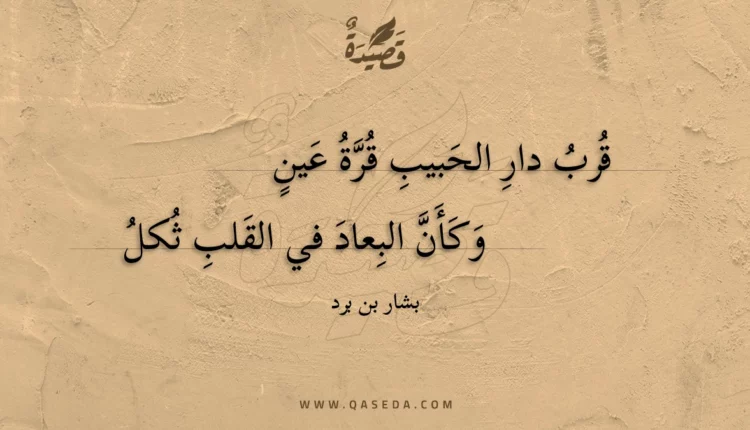 قَصِيدَةٌ
قُرْبُ دارِ الحَبيبِ قُرَّةُ عَينٍ
وَكَأَنَّ البِعادَ في القَلبِ ثُكلُ
بشار بن برد
WWW.QASEDA.COM